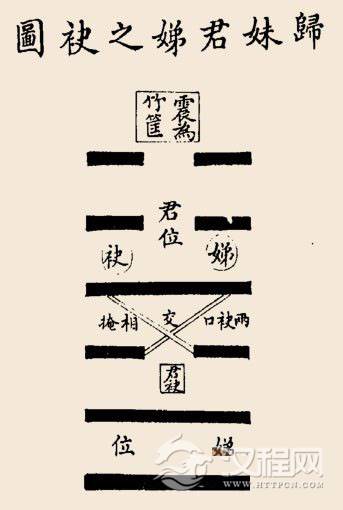 歸妹君娣之袂圖
震為
竹筐
君位
娣 袂
兩袂口 交 相掩
君袂
娣 位
汉程网
WWW.HTTPCN.COM